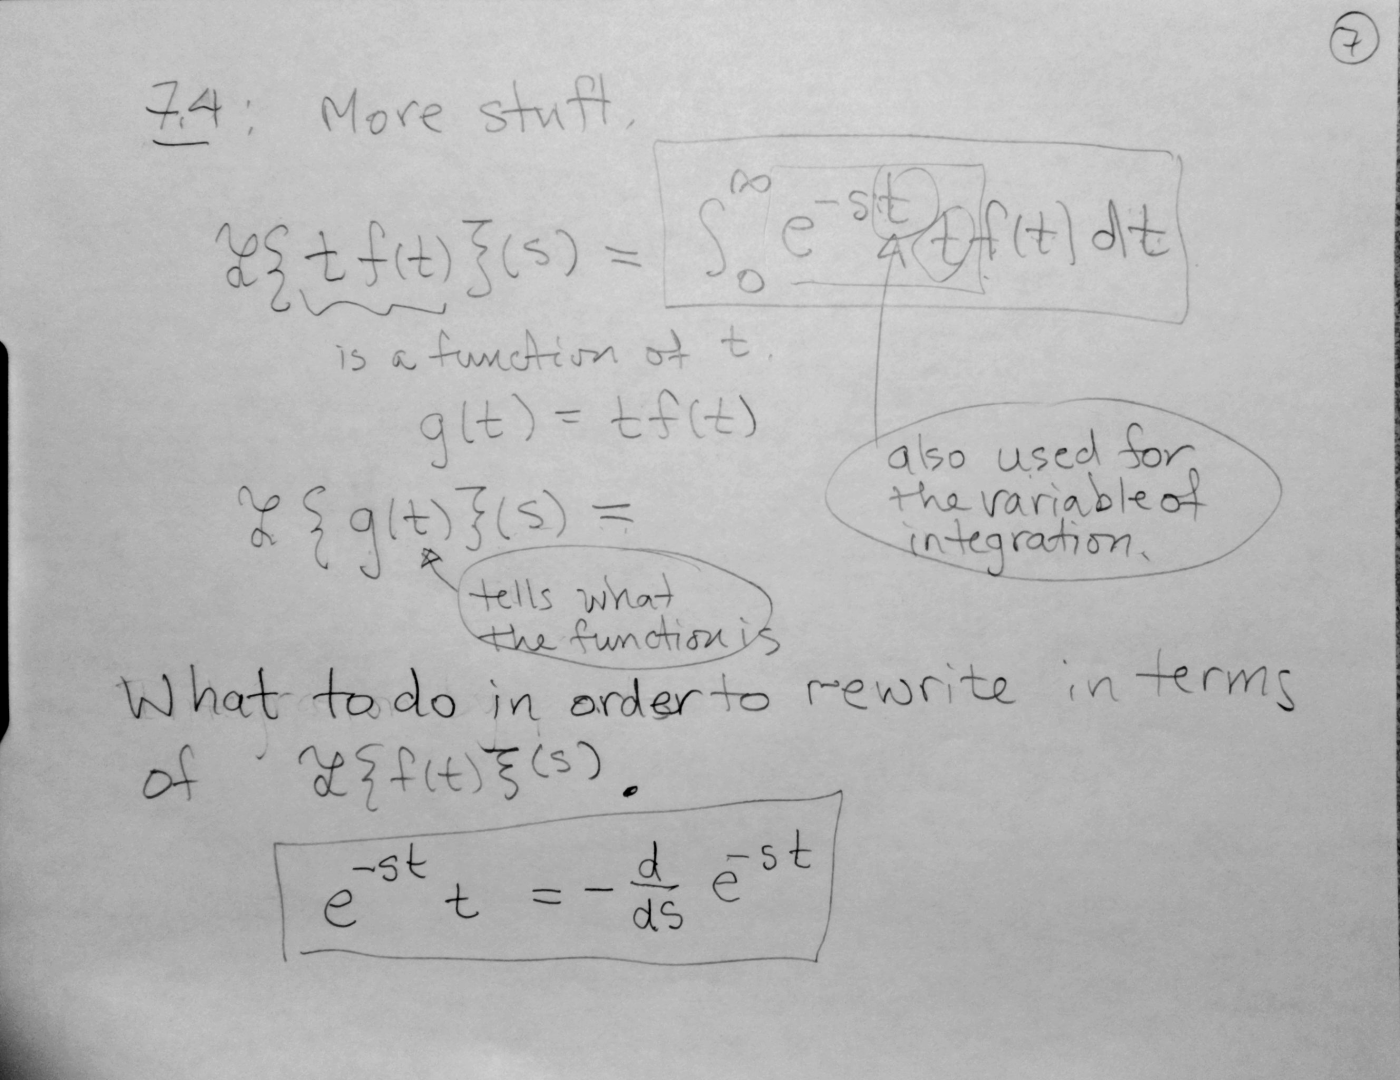 7
7.4: More stuff.
ℒ{t f(t)}(s) = ∫₀^∞ e^{-st} t f(t) dt
is a function of t.
g(t) = t f(t)
also used for
the variable of
integration.
ℒ{g(t)}(s) =
tells what
the function is
What to do in order to rewrite in terms
of ℒ{f(t)}(s).
e^{-st} t = - d/ds e^{-st}